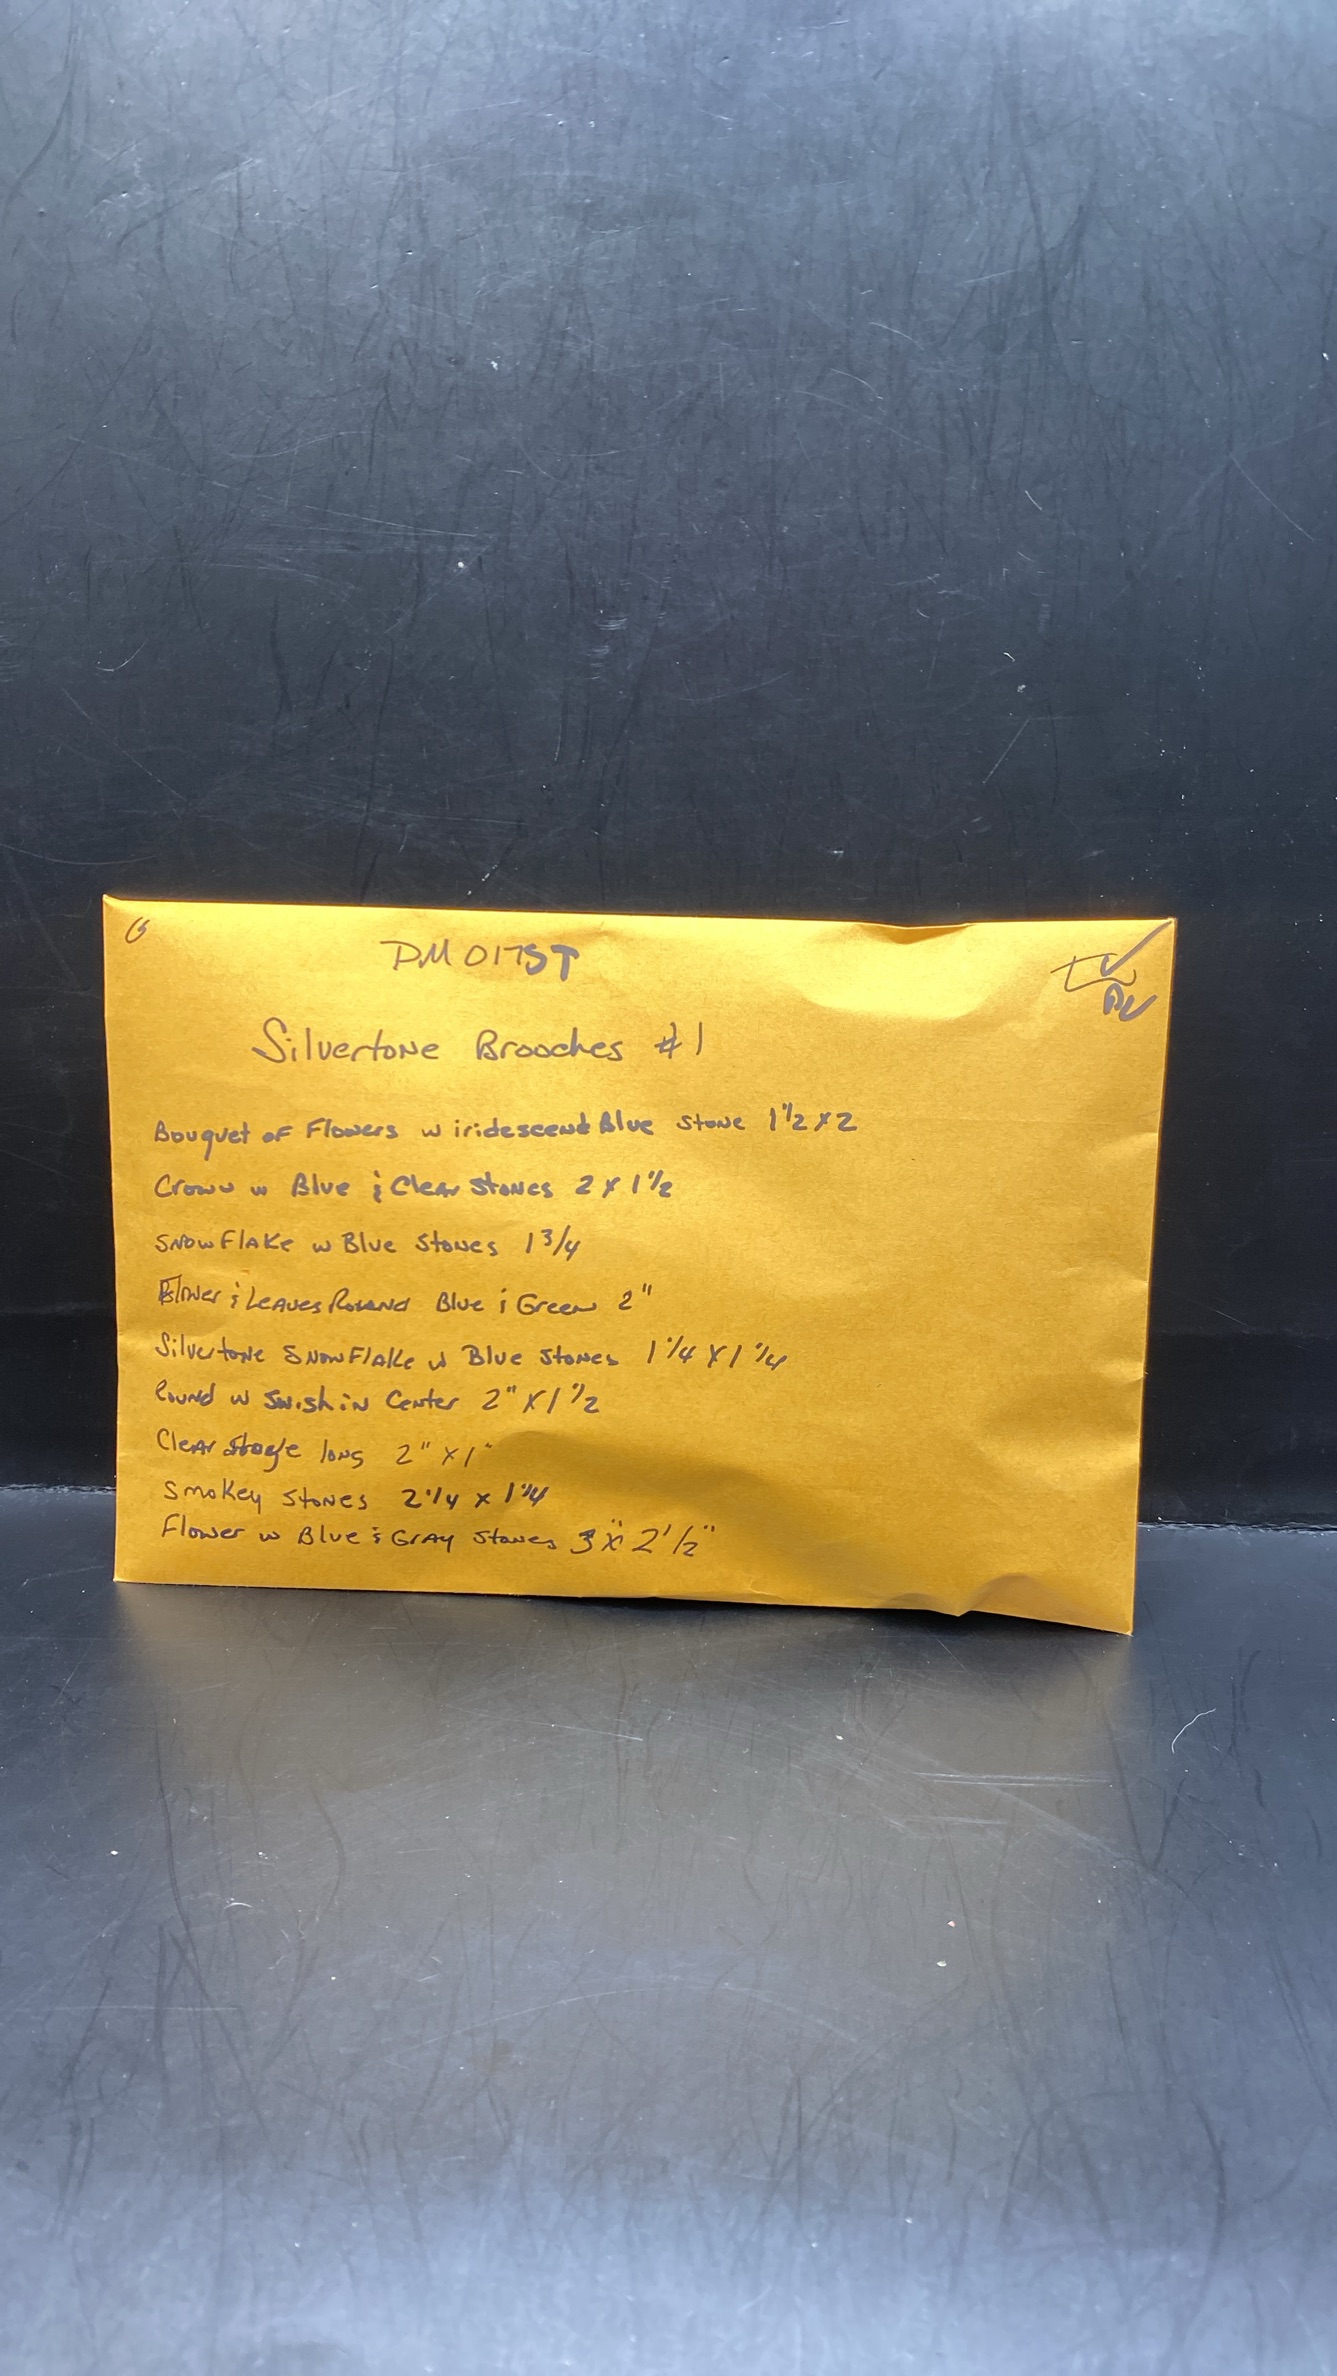 6
DM 017ST
Silvertone Brooches #1
Bouquet of Flowers w iridescend Blue Stone 1 1/2 x 2
Crown w Blue & Clear Stones 2 x 1 1/2
Snowflake w Blue Stones 1 3/4
Flower & Leaves Round Blue & Green 2"
Silvertone Snowflake w Blue Stones 1 1/4 x 1 1/4
Round w Swish in Center 2" x 1 1/2
Clear long 2" x 1"
Smokey Stones 2 1/4 x 1 1/4
Flower w Blue & Gray Stones 3" x 2 1/2"